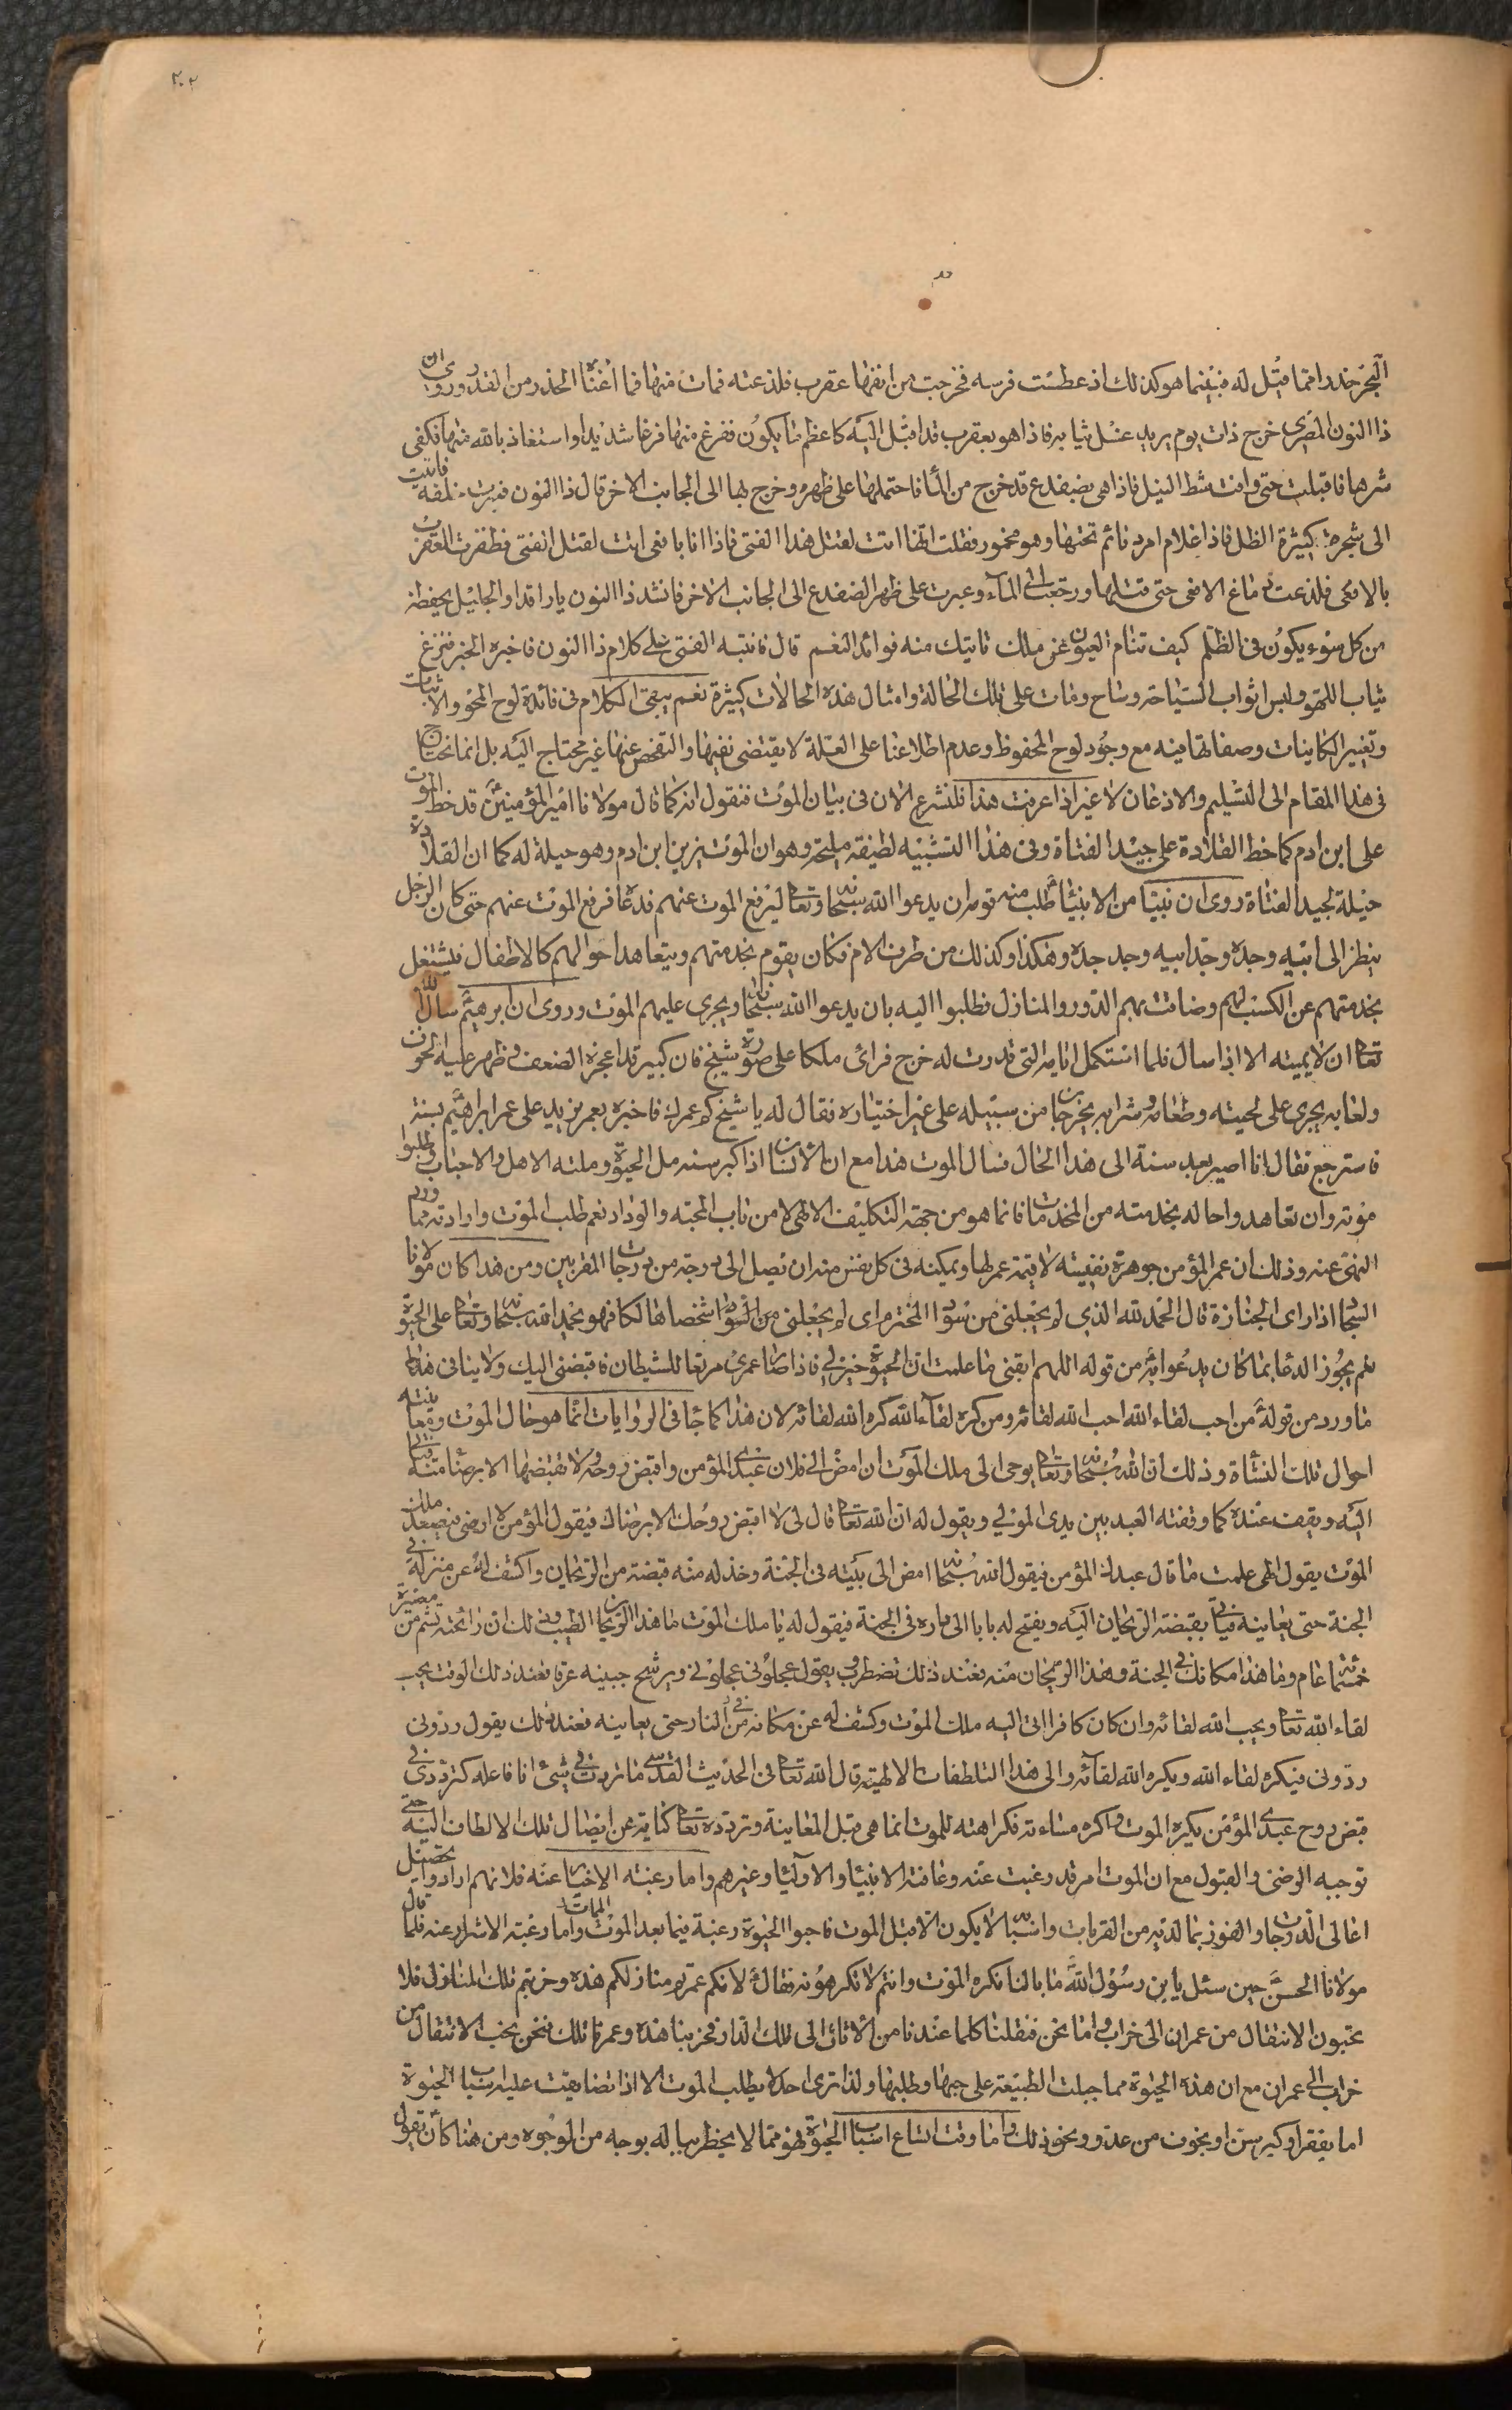 ٢٠٢
البحر حذرا مما قيل له فبينما هو كذلك اذ عطست فرسه فخرجت من انفها عقرب فلذعته فمات منها فما اغناه الحذر من القدر وروى ان
ذا النون المصرى خرج ذات يوم يريد غسل ثيابه فاذا هو بعقرب قد اقبل اليه كاعظم ما يكون ففزع منها فزعا شديدا واستعاذ بالله منها فكفى
شرها فاقبلت حتى وافت شط النيل فاذا هى بضفدع قد خرج من الماء فاحتملها على ظهره وخرج بها الى الجانب الاخر قال ذا النون فنزلت خلفه فاتيت
الى شجرة كثيرة الظل فاذا غلام امرد نائم تحتها وهو مخمور فقلت انها اتت لقتل هذا الفتى فاذا انا بافعى اتت لقتل الفتى فظفرت العقرب
بالافعى فلذعت دماغ الافعى حتى قتلها ورجعت الى الماء وعبرت على ظهر الضفدع الى الجانب الاخر فانشد ذا النون يا راقدا والجليل يحفظه
من كل سوء يكون فى الظلم كيف تنام العيون عن ملك تاتيك منه فوائد النعم قال فانتبه الفتى على كلام ذا النون فاخبره الخبر فنزع
ثياب اللهو ولبس اثواب السياحة وساح ومات على تلك الحالة وامثال هذه الحالات كثيرة نعم يبقى الكلام فى فائدة لوح المحو والاثبات
وتغيير الكاينات وصفاتها فيه مع وجود لوح المحفوظ وعدم اطلاعنا على العلة لا يقتضى نفيها والتفحص عنها غير محتاج اليه بل انما نحتاج
فى هذا المقام الى التسليم والاذعان لا غير اذا عرفت هذا فلنشرع الان فى بيان الموت فنقول انه كما قال مولانا امير المؤمنين قد خط الموت
على ابن ادم كما خط القلادة على جيد الفتاة وفى هذا التشبيه لطيفة مليحة وهو ان الموت يزين ابن ادم وهو حيلة له كما ان القلادة
حيلة لجيد الفتاة روى ان نبيا من الانبياء طلب منه قومه ان يدعوا الله سبحانه وتعالى ليرفع الموت عنهم فدعا فرفع الموت عنهم حتى كان الرجل
ينظر الى ابيه وجده وجد ابيه وجد جده وهكذا وكذلك من طرف الام فكان يقوم بخدمتهم ويتعاهد احوالهم كالاطفال فيشتغل
بخدمتهم عن الكسب لهم وضاقت بهم الدور والمنازل فطلبوا اليه بان يدعوا الله سبحانه ويجرى عليهم الموت وروى ان ابرهيم سال الله
تعالى ان لا يميته الا اذا سال فلما استكمل ايامه التى قدرت له خرج فراى ملكا على صورة شيخ فان كبير قد اعجزه الضعف وظهر عليه الخرف
ولعابه يجرى على لحيته وطعامه وشرابه يخرجان من سبيله على غير اختياره فقال له يا شيخ كم عمرك فاخبره بعمر يزيد على عمر ابراهيم بسنة
فاسترجع فقال انا اصير بعد سنة الى هذا الحال فسال الموت هذا مع ان الانسان اذا كبر سنه مل الحيوة ومله الاهل والاحباب وطلبوا
موته وان تعاهد واحا له بخدمته من المخدمات فانما هو من جهة التكليف الالهى لا من باب المحبة والوداد نعم طلب الموت وارادته مما ورد
النهى عنه وذلك ان عمر المؤمن جوهرة نفيسة لا قيمة عمر لها ويمكنه فى كل نفس منه ان يصل الى درجة من درجات المقربين ومن هذا كان مولانا
السجاد اذا راى الجنازة قال الحمد لله الذى لم يجعلنى من سواد المخترم اى لم يجعلنى من السواد اشخاصا هالكا فهو يحمد الله سبحانه وتعالى على الحيوة
نعم يجوز الدعا بما كان يدعوا به من قوله اللهم ابقنى ما علمت ان الحيوة خير لى فاذا صار عمرى مرتعا للشيطان فاقبضنى اليك ولا ينافى هذا
ما ورد من قوله من احب لقاء الله احب الله لقائه ومن كره لقاء الله كره الله لقائه لان هذا كما جاء فى الروايات انما هو حال الموت ومعاينته
احوال تلك النشاة وذلك ان الله سبحانه وتعالى يوحى الى ملك الموت ان امض الى فلان عبدى المؤمن واقبض روحه لا تقبضها الا برضا منه فياتى
اليه ويقف عنده كما وقفته العبد بين يدى المولى ويقول له ان الله تعالى قال لى لا اقبض روحك الا برضاك فيقول المؤمن لا ارضى فيصعد ملك
الموت يقول الهى علمت ما قال عبدك المؤمن فيقول الله سبحانه امض الى بيته فى الجنة وخذ له منه قبضة من الريحان واكشف له عن منزله فى
الجنة حتى يعاينه فياتى بقبضة الريحان اليه ويفتح له بابا الى داره فى الجنة فيقول له يا ملك الموت ما هذا الريحان الطيب وذلك ان رائحته تشم من مسيرة
خمسمائة عام وما هذا مكانك فى الجنة وهذا الريحان منه فعند ذلك تضطرب يقول عجلونى عجلونى ويرشح جبينه عرقا فعند ذلك الوقت يحب
لقاء الله تعالى ويحب الله لقائه وان كان كافرا اتى اليه ملك الموت وكشف له عن مكانه من النار حتى يعاينه فعند ذلك يقول ردونى
ردونى فيكره لقاء الله ويكره الله لقائه والى هذا التلطفات الالهية قال الله تعالى فى الحديث القدسى ما ترددت فى شئ انا فاعله كترددى فى
قبض روح عبدى المؤمن يكره الموت واكره مساءته فكراهته للموت انما هى قبل المعاينة وتردده تعالى كناية عن ايصال تلك الالطاف اليه حتى
توجبه الرضى والقبول مع ان الموت امر قد رغبت عنه وعافته الانبياء والاولياء وغيرهم واما رغبته الاخيار عنه فلانهم ارادوا تحصيل
اعالى الدرجات والفوز بما لديه من القربات واسبابه لا يكون الا قبل الموت فاحبوا الحيوة رغبة فيما بعد الموت الممات واما رغبته الاشرار عنه فلما قال
مولانا الحسن حين سئل يا بن رسول الله ما بالنا نكره الموت وانتم لا تكرهونه فقال لانكم عمرتم منازلكم هذه وخربتم تلك المنازل فلا
تحبون الانتقال من عمران الى خراب واما نحن فنقلنا كلما عندنا من الاثاث الى تلك الدار فخربنا هذه وعمرنا تلك فنحن نحب الانتقال من
خراب الى عمران مع ان هذه الحيوة مما جبلت الطبيعة على حبها وطلبها ولذا ترى احدا لا يطلب الموت الا اذا تضايقت عليه اسباب الحيوة
اما بفقر او كبر سن او بخوف من عدو ونحو ذلك واما وقت اتساع اسباب الحيوة فهو مما لا يخطر بباله بوجه من الوجوه ومن هنا كان يقول